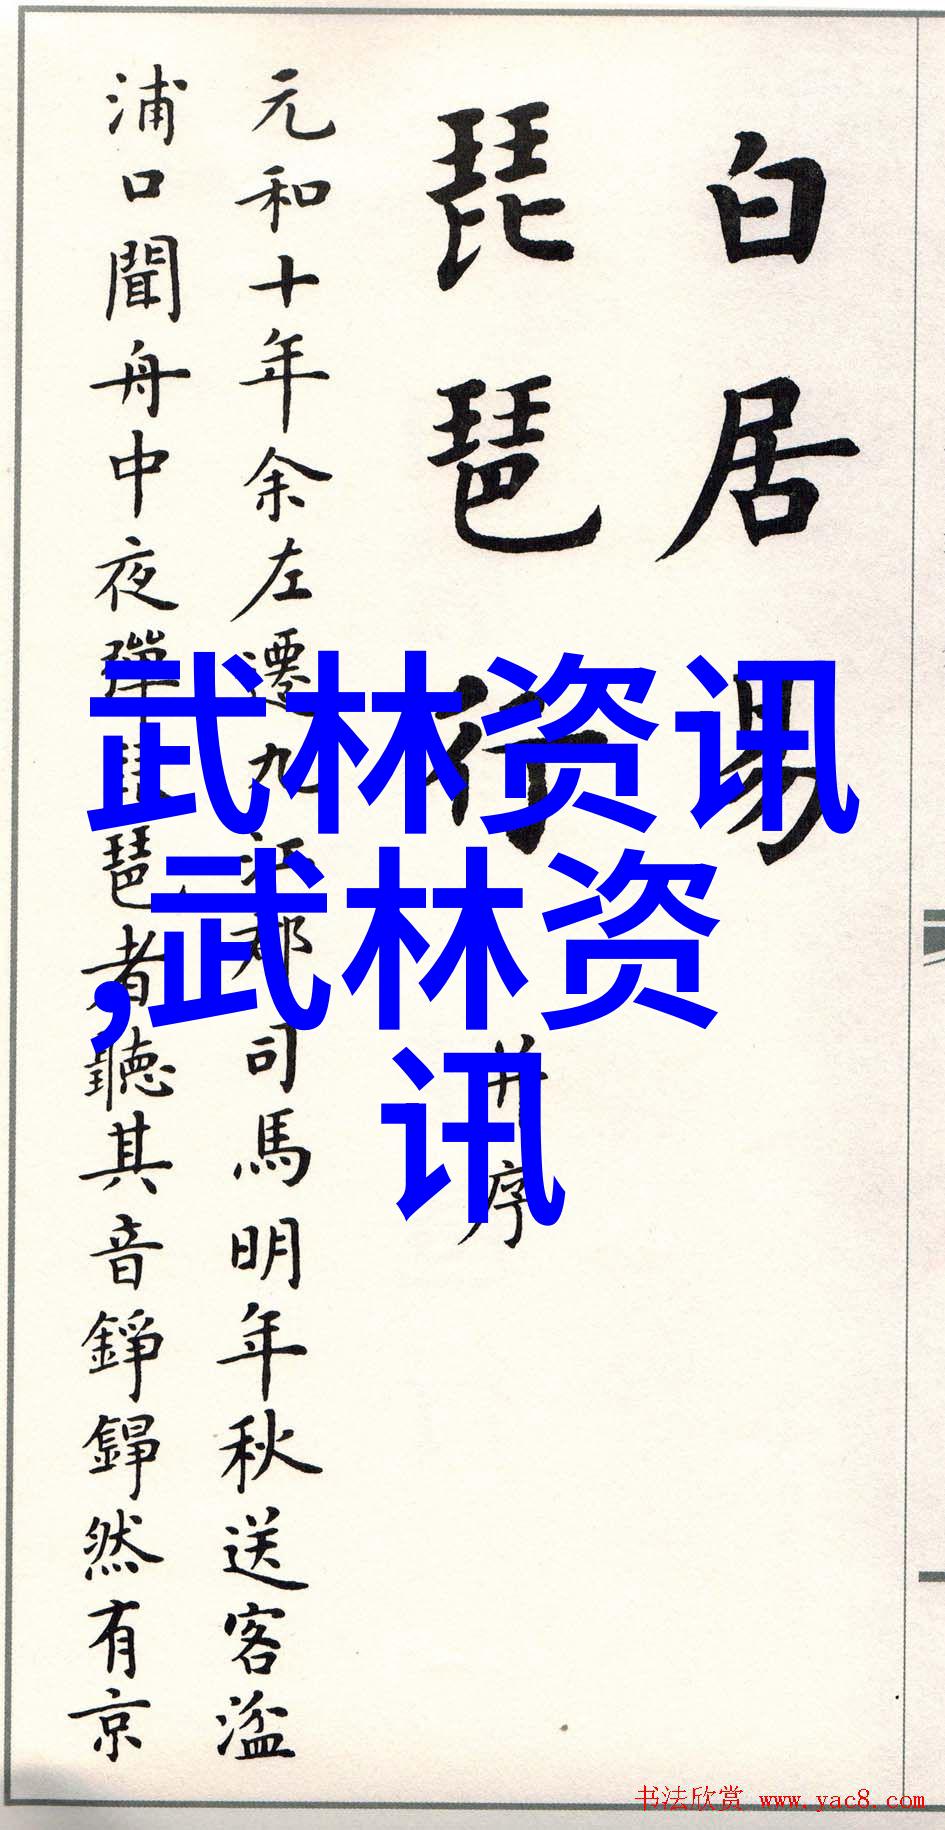 白居易
琵琶行 并序
元和十年余左遷九江郡司馬明年秋送客湓
浦口聞舟中夜彈琵琶者聽其音錚錚然有京
武林资讯
,武林资
讯
书法欣赏 www.yac8.com